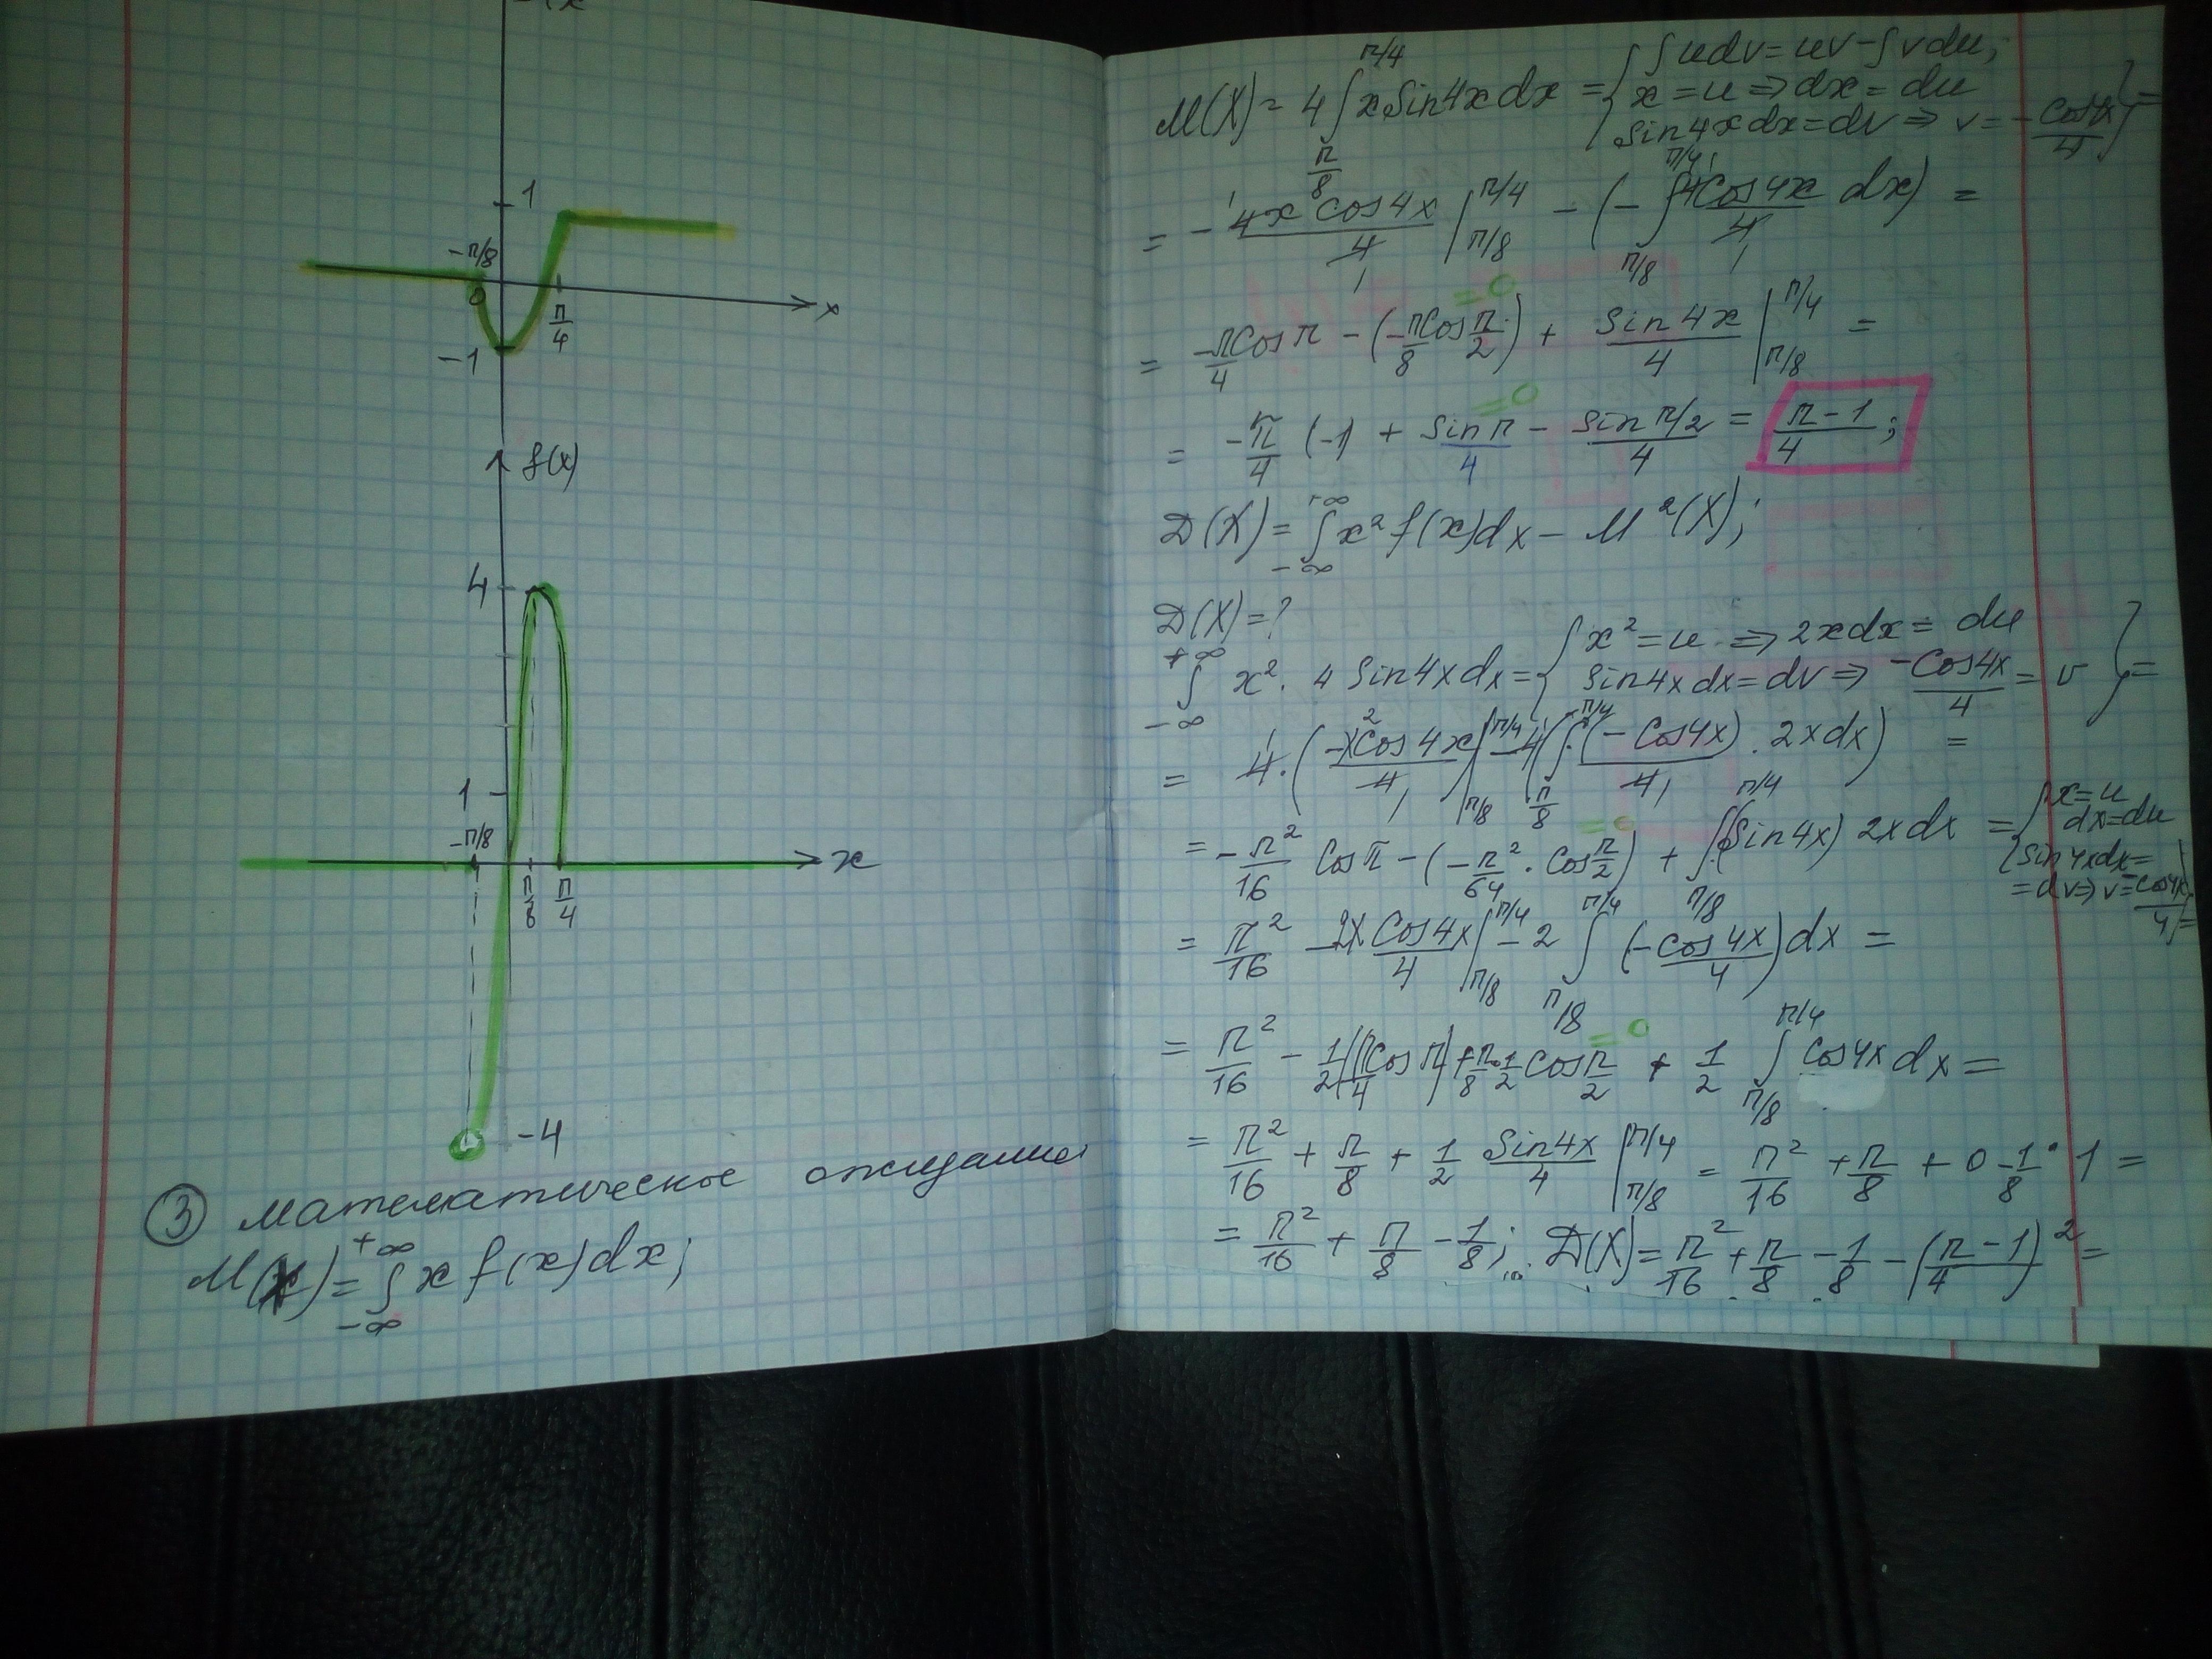 1
-π/8
0
π/4
x
-1
f(x)
4
1
-π/8
π/8
π/4
x
-4
③ Математическое ожидание
M(X) = ∫_{-∞}^{+∞} x f(x) dx;
M(X) = 4 ∫_{π/8}^{π/4} x sin4x dx = { ∫ u dv = uv - ∫ v du;
x = u ⇒ dx = du
sin4x dx = dv ⇒ v = -cos4x/4 } =
= - 4x cos4x/4 |_{π/8}^{π/4} - (- ∫_{π/8}^{π/4} 4cos4x/4 dx) =
= -π/4 cos π - (-π/8 cos π/2) + sin4x/4 |_{π/8}^{π/4} =
= 0
= -π/4 (-1) + sin π/4 - sin π/2/4 = π-1/4;
= 0
D(X) = ∫_{-∞}^{+∞} x² f(x) dx - M²(X);
D(X) = ?
∫_{-∞}^{+∞} x² · 4 sin4x dx = { x² = u ⇒ 2x dx = du
sin4x dx = dv ⇒ -cos4x/4 = v } =
= 4 · (-x² cos4x/4) |_{π/8}^{π/4} - 4 (∫_{π/8}^{π/4} (-cos4x)/4 · 2x dx) =
= -π²/16 cos π - (-π²/64 · cos π/2) + ∫_{π/8}^{π/4} (sin4x) 2x dx = { x = u
dx = du
sin4x dx =
= dv ⇒ v = -cos4x/4 } =
= π²/16 - 2x cos4x/4 |_{π/8}^{π/4} - 2 ∫_{π/8}^{π/4} (-cos4x/4) dx =
= π²/16 - 1/2 (π/4 cos π) + π/8 · 1/2 cos π/2 + 1/2 ∫_{π/8}^{π/4} cos4x dx =
= 0
= π²/16 + π/8 + 1/2 sin4x/4 |_{π/8}^{π/4} = π²/16 + π/8 + 0 - 1/8 · 1 =
= π²/16 + π/8 - 1/8; D(X) = π²/16 + π/8 - 1/8 - (π-1/4)² =